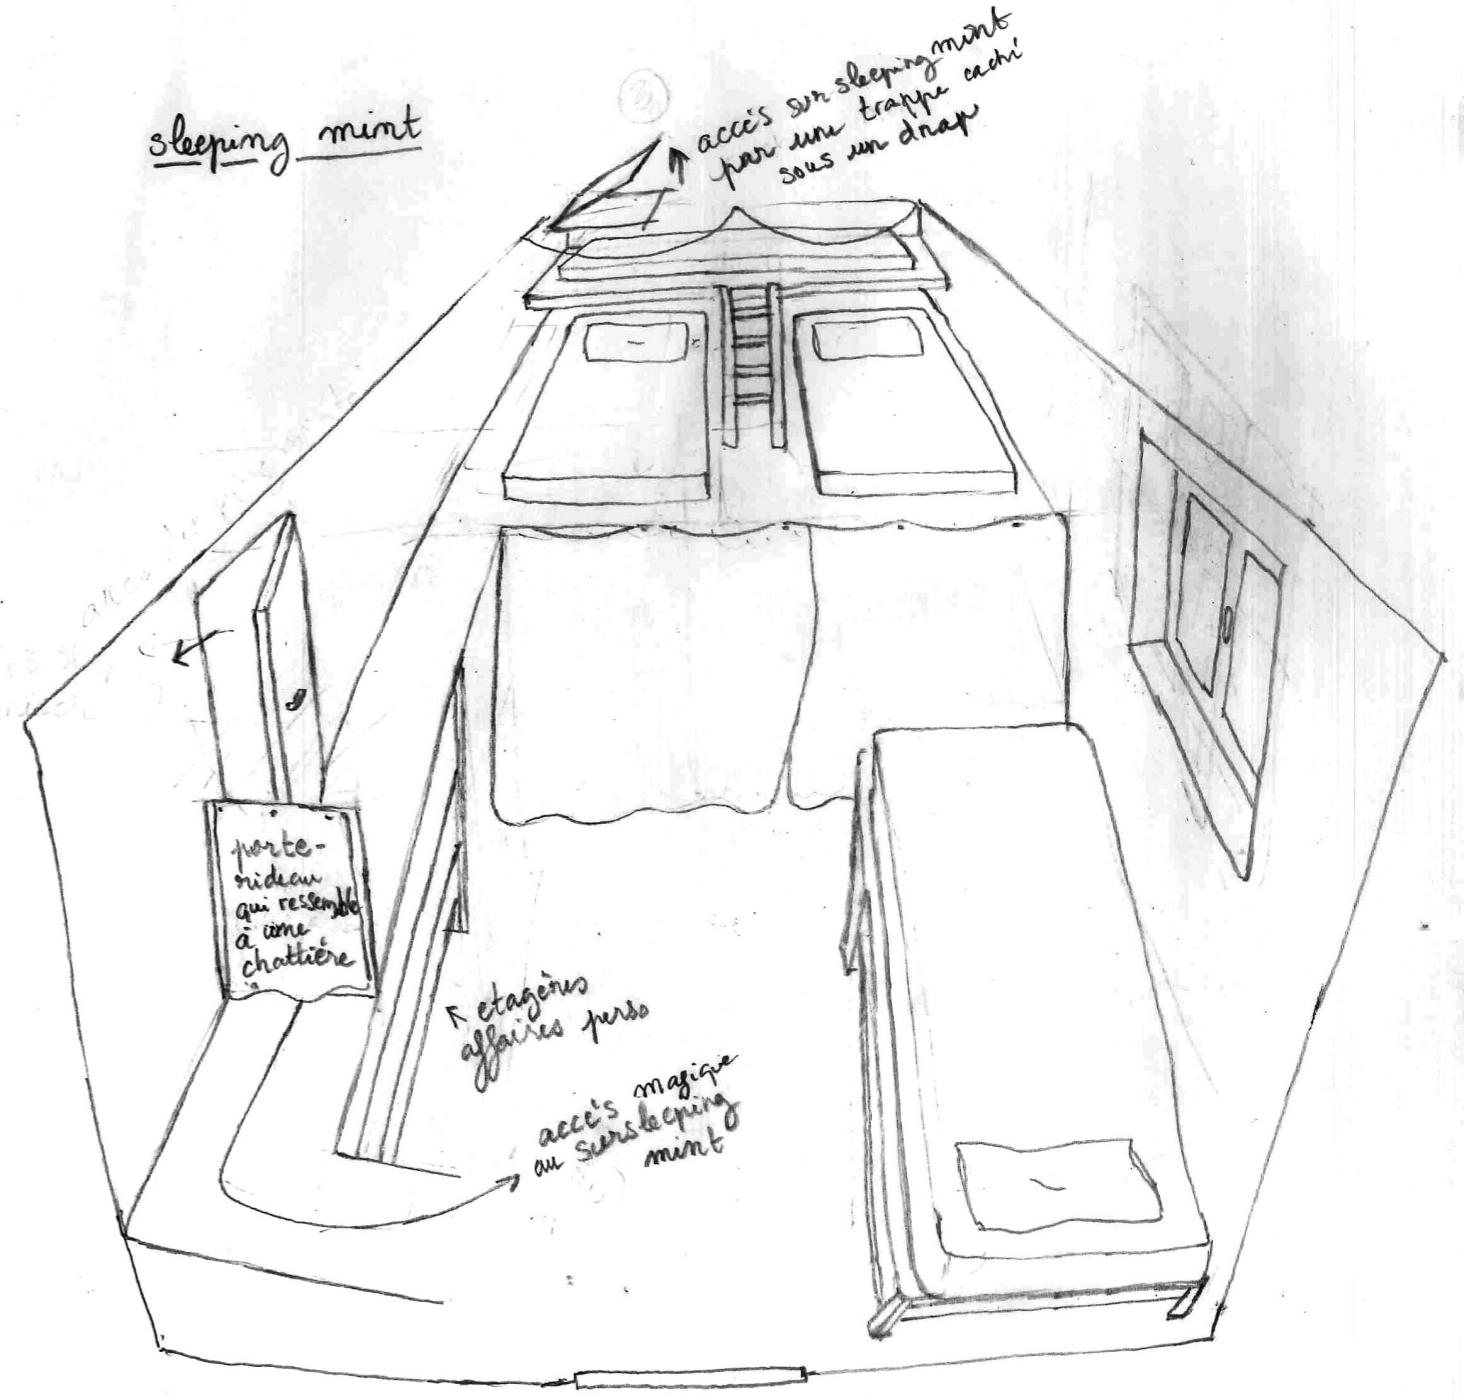 sleeping mint
accès sur sleeping mint
par une trappe caché
sous un drap
porte-
rideau
qui ressemble
à une
chattiére
etagères
affaires perso
accès magique
au sursleeping
mint